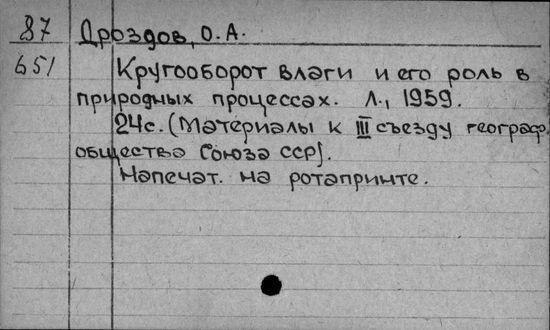 87 Дроздов, О.А.
651 Кругооборот влаги и его роль в
природных процессах. Л., 1959.
24с. (Материалы к III съезду географ.
общества Союза ССР).
Напечат. на ротапринте.